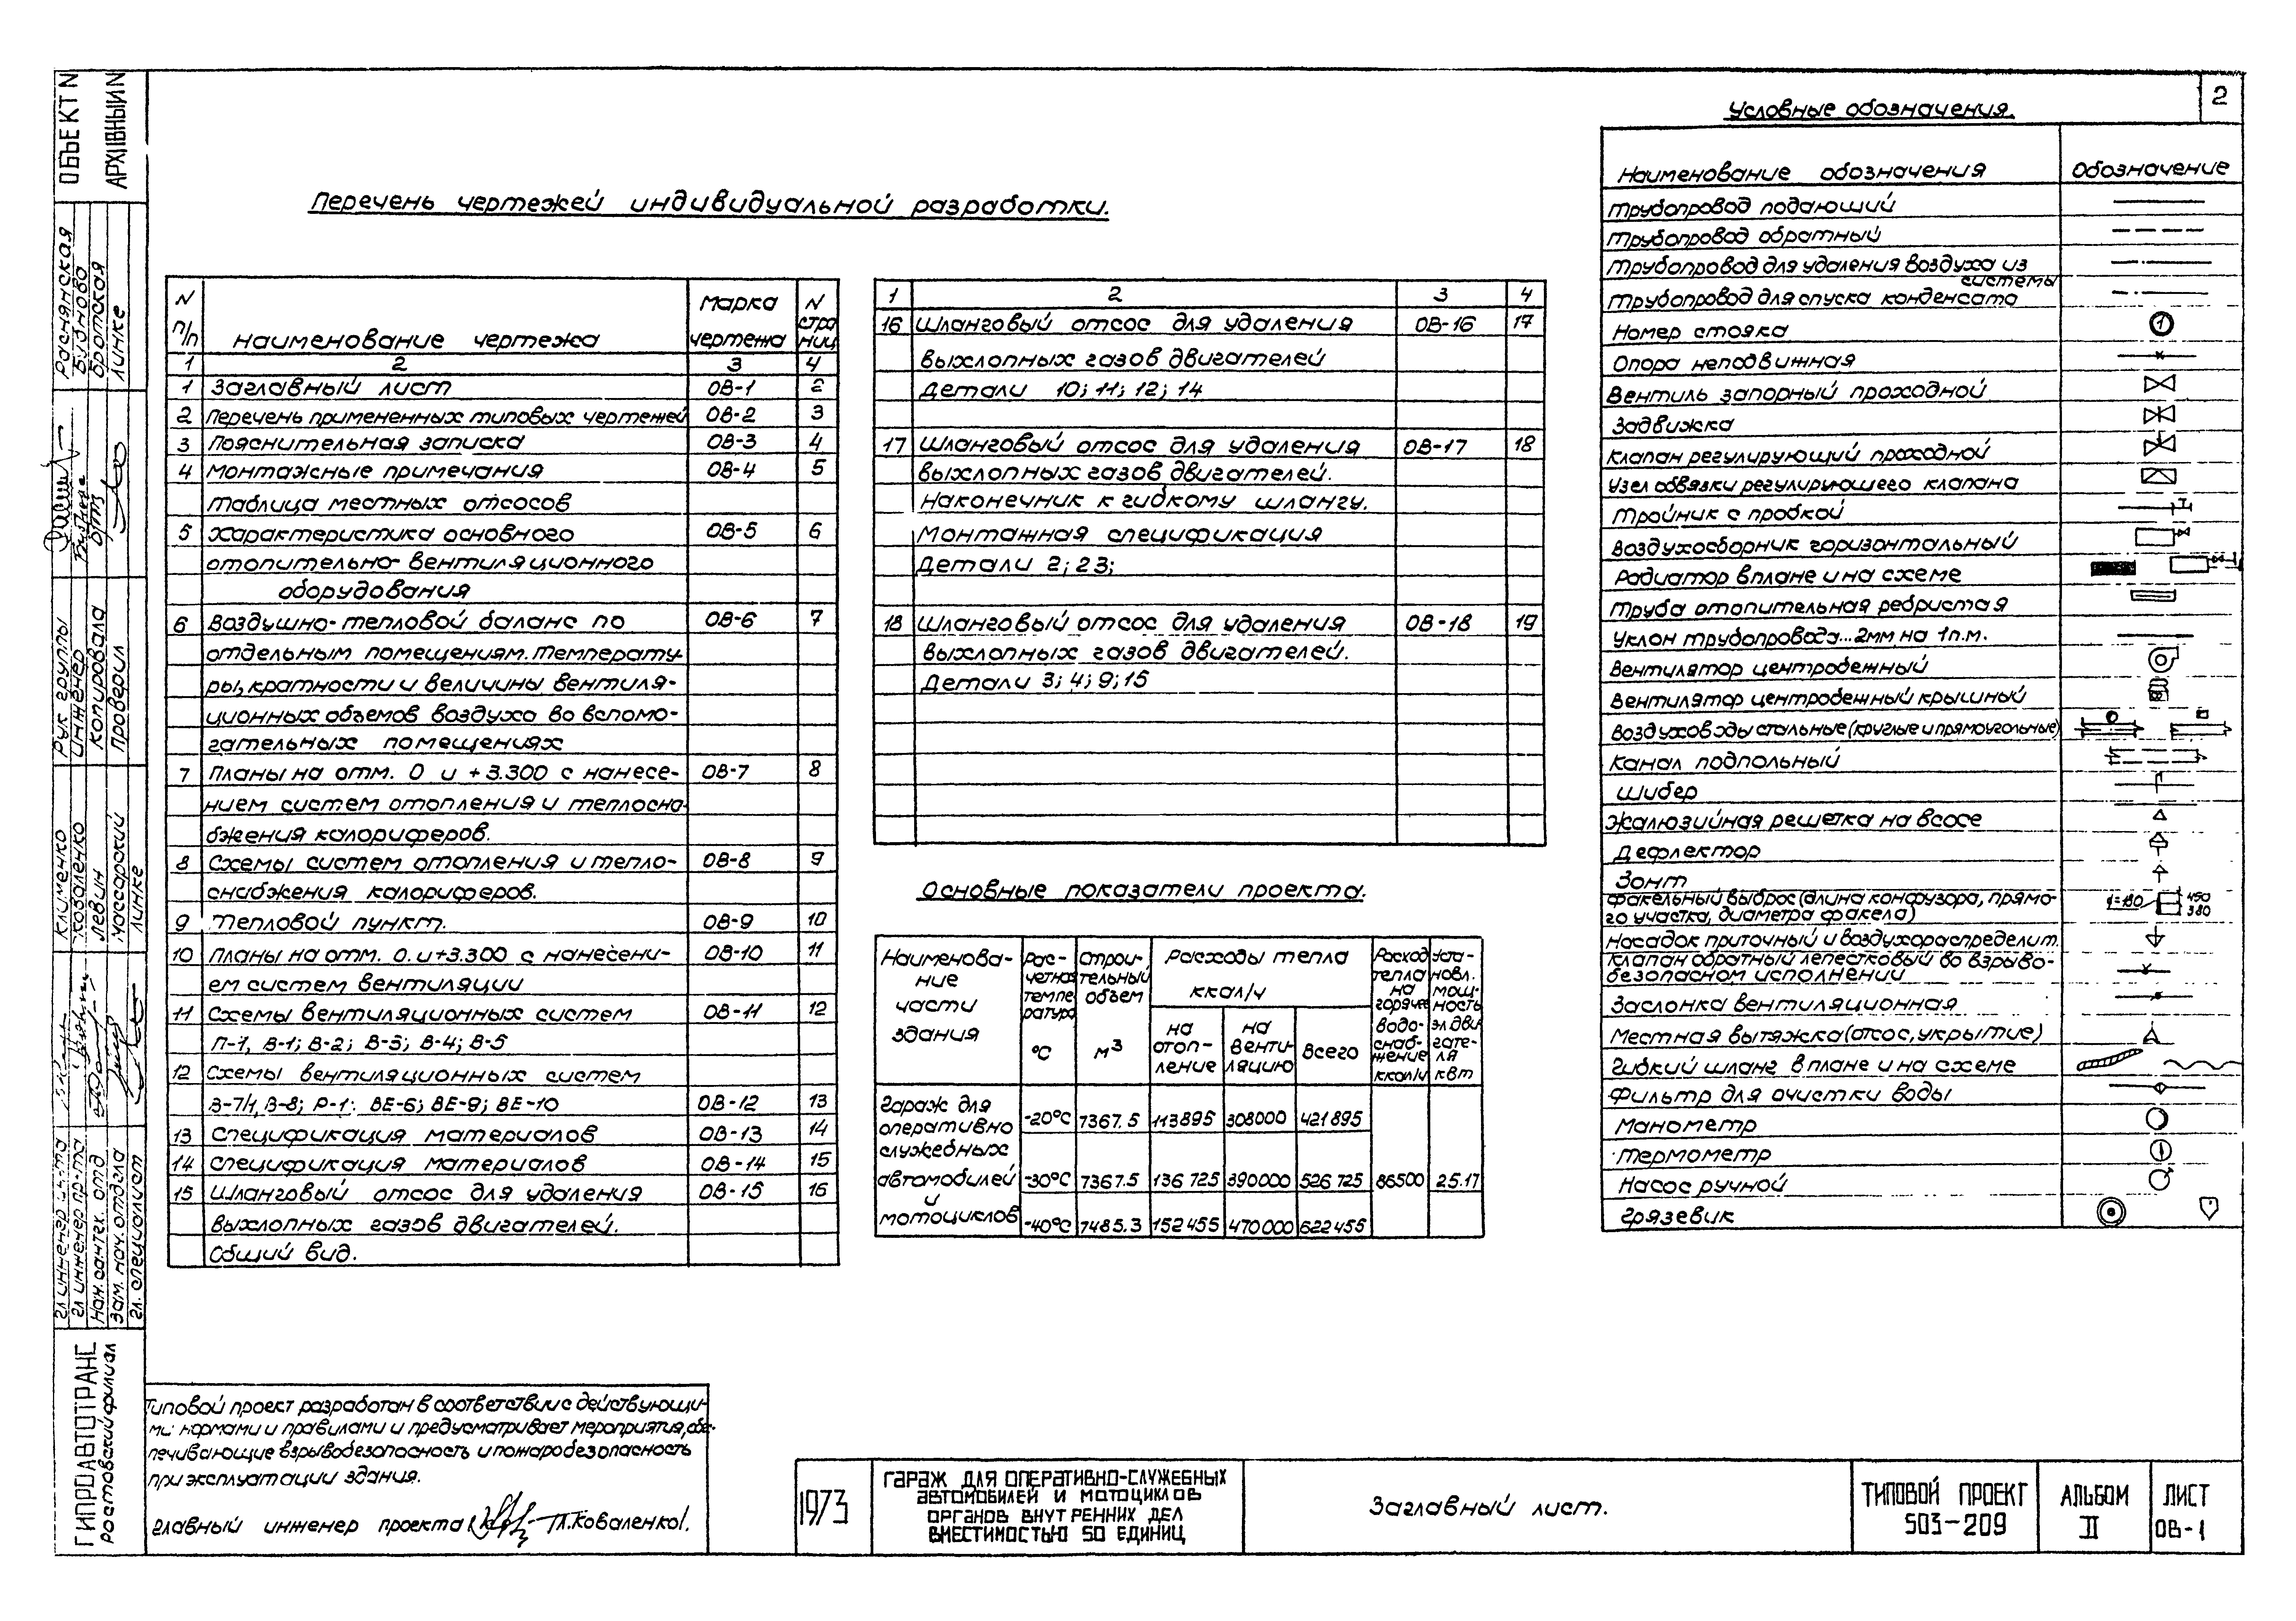 2
ОБЪЕКТ N
АРХИВНЫЙ N
Перечень чертежей индивидуальной разработки.
N п/п
Наименование чертежа
Марка чертежа
N стра ниц
1 2 3 4
1 Заглавный лист ОВ-1 2
2 Перечень примененных типовых чертежей ОВ-2 3
3 Пояснительная записка ОВ-3 4
4 Монтажные примечания ОВ-4 5
Таблица местных отсосов
5 Характеристика основного ОВ-5 6
отопительно-вентиляционного
оборудования
6 Воздушно-тепловой баланс по ОВ-6 7
отдельным помещениям. Температу-
ры, кратности и величины вентиля-
ционных объемов воздуха во вспомо-
гательных помещениях
7 Планы на отм. 0 и +3.300 с нанесе- ОВ-7 8
нием систем отопления и теплосна-
бжения калориферов.
8 Схемы систем отопления и тепло- ОВ-8 9
снабжения калориферов.
9 Тепловой пункт. ОВ-9 10
10 Планы на отм. 0. и +3.300 с нанесени- ОВ-10 11
ем систем вентиляции
11 Схемы вентиляционных систем ОВ-11 12
П-1, В-1; В-2; В-3; В-4; В-5
12 Схемы вентиляционных систем
В-7/1, В-8; Р-1; ВЕ-6; ВЕ-9; ВЕ-10 ОВ-12 13
13 Спецификация материалов ОВ-13 14
14 Спецификация материалов ОВ-14 15
15 Шланговый отсос для удаления ОВ-15 16
выхлопных газов двигателей.
Общий вид.
1 2 3 4
16 Шланговый отсос для удаления ОВ-16 17
выхлопных газов двигателей
Детали 10; 11; 12; 14
17 Шланговый отсос для удаления ОВ-17 18
выхлопных газов двигателей.
Наконечник к гибкому шлангу.
Монтажная спецификация
Детали 2; 23;
18 Шланговый отсос для удаления ОВ-18 19
выхлопных газов двигателей.
Детали 3; 4; 9; 15
Основные показатели проекта.
Наименова-
ние
части
здания
Рас-
четная
темпе
ратура
°С
Строи-
тельный
объем
м³
Расходы тепла
ккал/ч
на
отоп-
ление
на
венти-
ляцию
всего
Расход
тепла
на
горячее
водо-
снаб-
жение
ккал/ч
Уста-
новл.
мощ-
ность
эл.дви
гате-
ля
квт
Гараж для
оперативно
служебных
автомобилей
и
мотоциклов
-20°С 7367.5 113895 308000 421895
-30°С 7367.5 136 725 390000 526 725 86500 25.17
-40°С 7485.3 152 455 470 000 622 455
Условные обозначения.
Наименование обозначения Обозначение
Трубопровод подающий
Трубопровод обратный
Трубопровод для удаления воздуха из
системы
Трубопровод для спуска конденсата
Номер стояка 1
Опора неподвижная
Вентиль запорный проходной
Задвижка
Клапан регулирующий проходной
Узел обвязки регулирующего клапана
Тройник с пробкой
Воздухосборник горизонтальный
Радиатор в плане и на схеме
Труба отопительная ребристая
Уклон трубопровода...2мм на 1п.м.
Вентилятор центробежный
Вентилятор центробежный крышный
Воздуховоды стальные (круглые и прямоугольные)
Канал подпольный
Шибер
Жалюзийная решетка на всосе
Дефлектор
Зонт
Факельный выброс (длина конфузора, прямо-
го участка, диаметра факела)
450
380
Насадок приточный и воздухораспределит.
Клапан обратный лепестковый во взрыво-
безопасном исполнении
Заслонка вентиляционная
Местная вытяжка (отсос, укрытие)
Гибкий шланг в плане и на схеме
Фильтр для очистки воды
Манометр
Термометр
Насос ручной
Грязевик
Роснянская
Буднова
Бротская
Линке
Рук группы
Инженер
Копировала
Проверил
Клименко
Коваленко
Левин
Массарский
Линке
гл инженер ин-та
гл инженер пр-та
Нач. сантех. отд
Зам. нач. отдела
гл. специалист
ГИПРОАВТОТРАНС
Ростовский филиал
Типовой проект разработан в соответствии с действующи-
ми нормами и правилами и предусматривает мероприятия, обес-
печивающие взрывобезопасность и пожаробезопасность
при эксплуатации здания.
Главный инженер проекта /Л.Коваленко/.
1973
ГАРАЖ ДЛЯ ОПЕРАТИВНО-СЛУЖЕБНЫХ
АВТОМОБИЛЕЙ И МОТОЦИКЛОВ
ОРГАНОВ ВНУТРЕННИХ ДЕЛ
ВМЕСТИМОСТЬЮ 50 ЕДИНИЦ
Заглавный лист.
ТИПОВОЙ ПРОЕКТ
503-209
АЛЬБОМ
II
ЛИСТ
ОВ-1